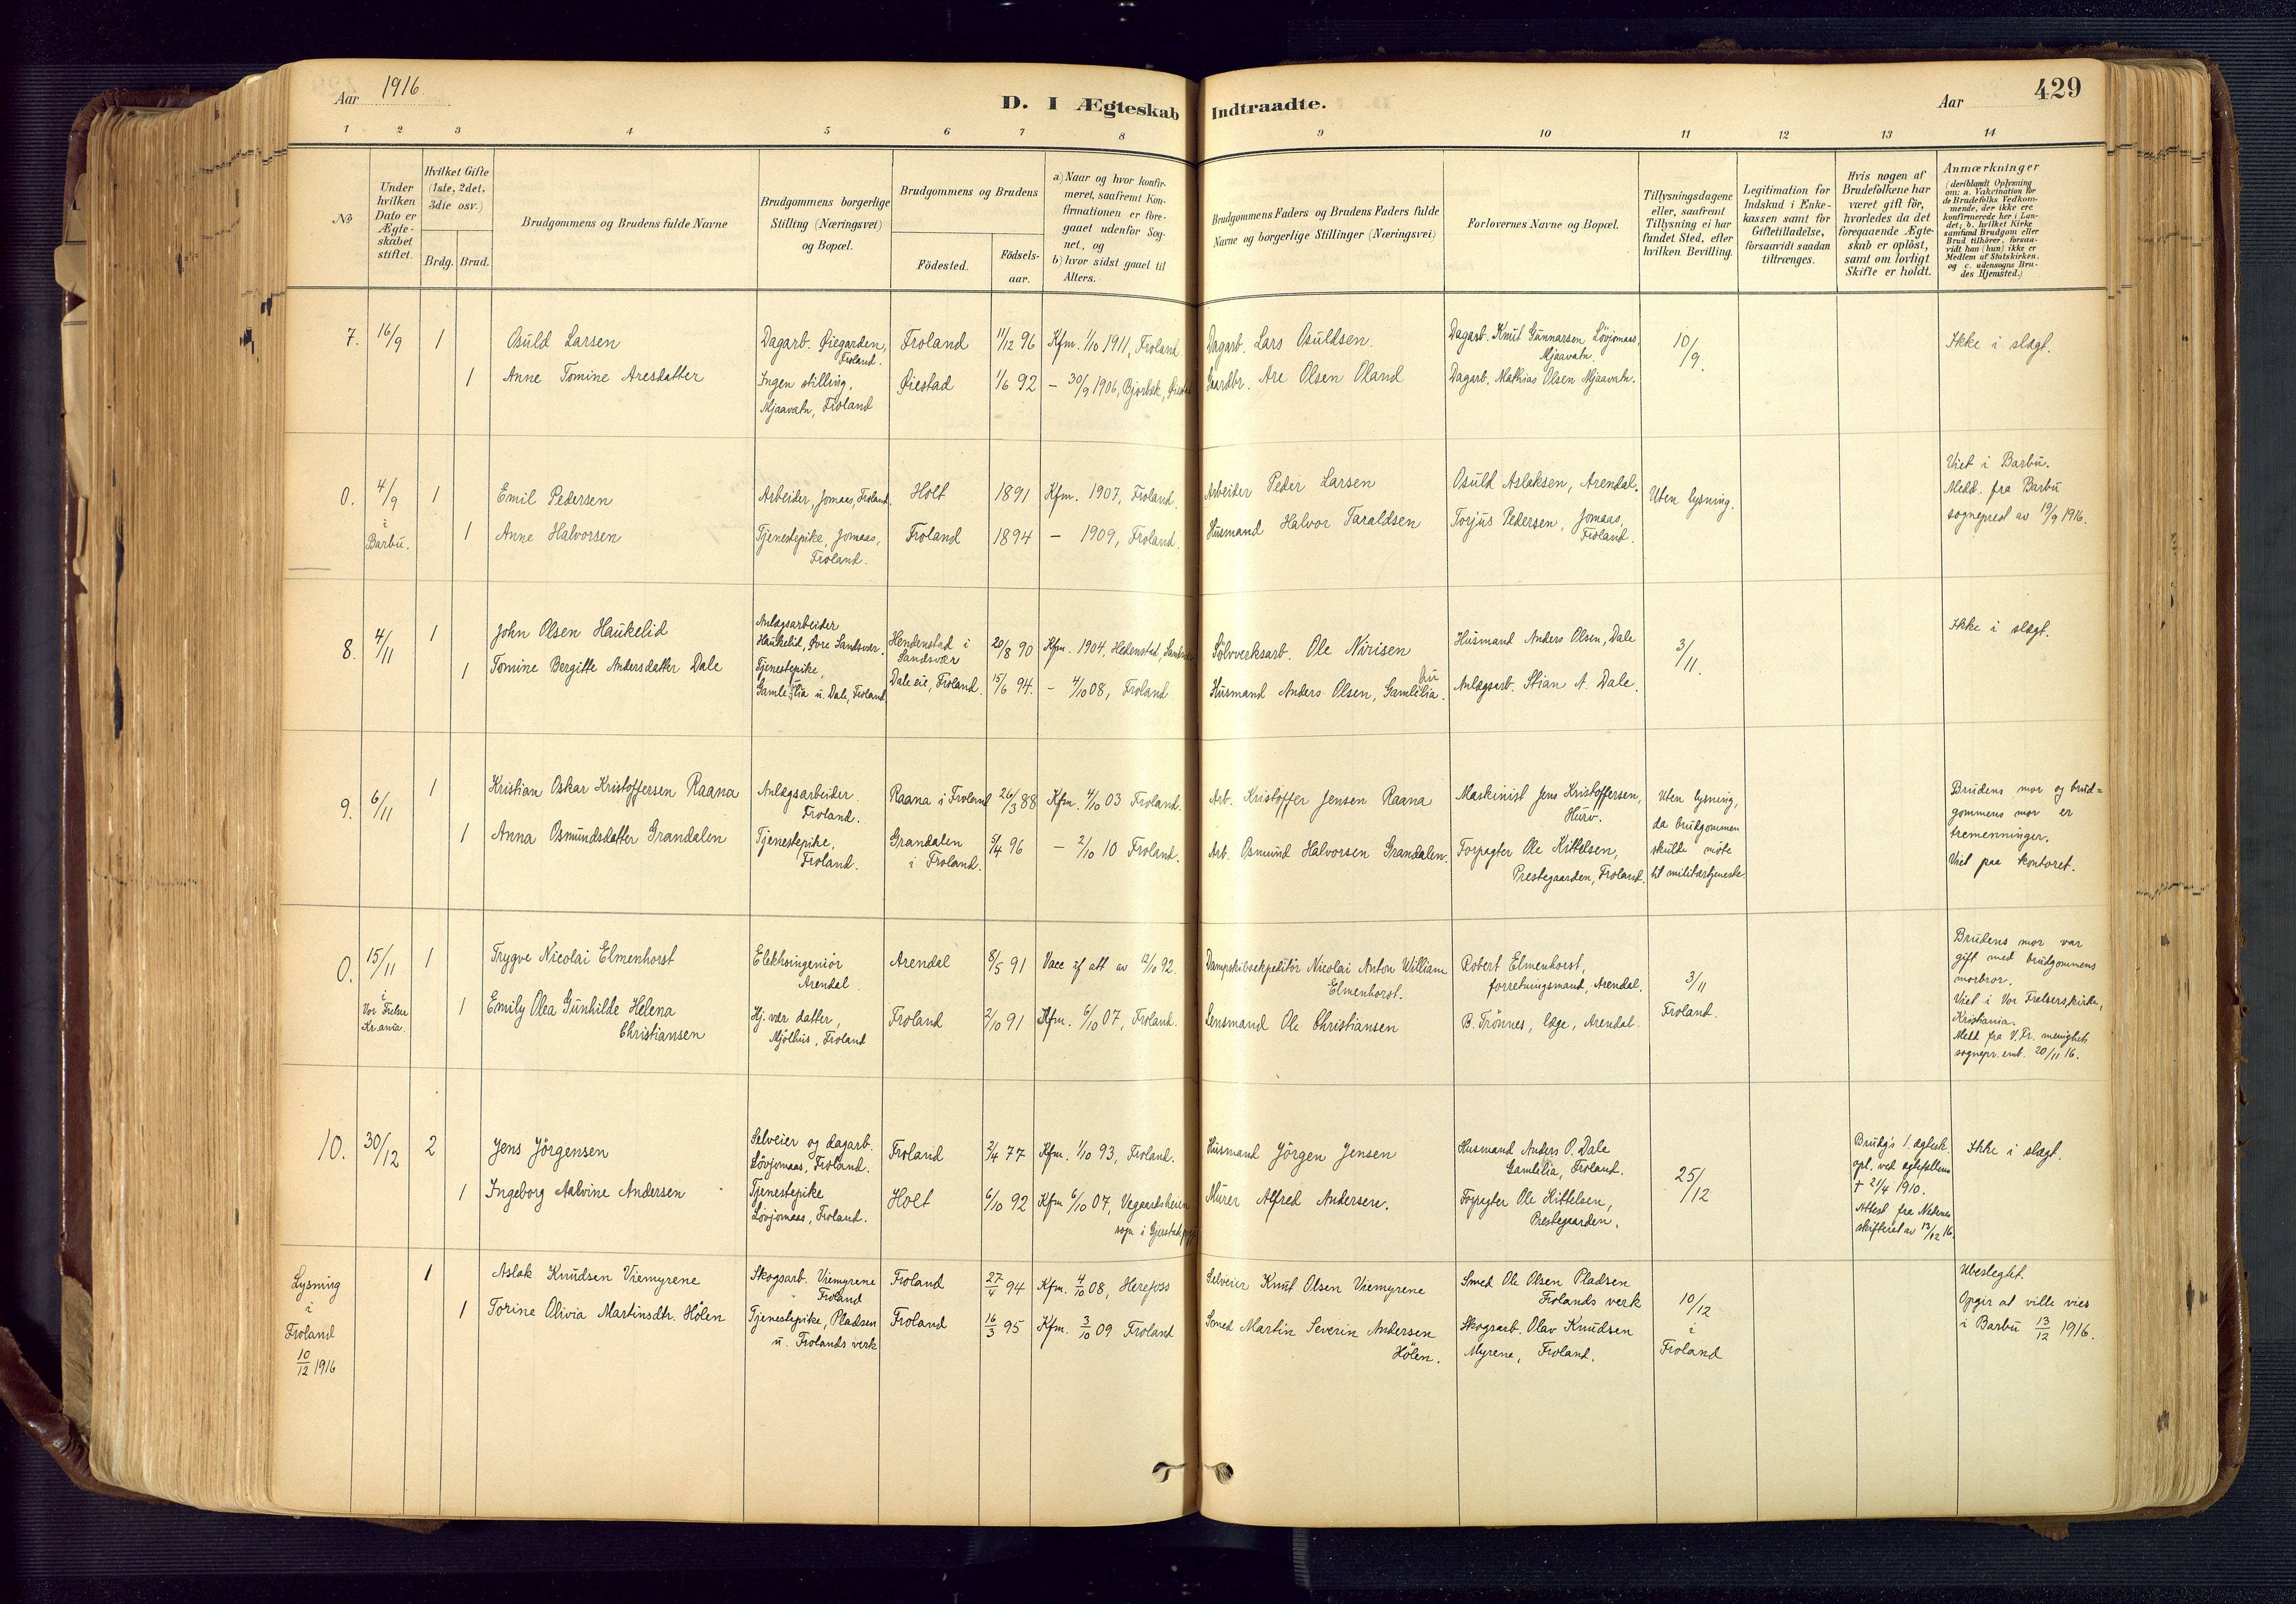 Aar 1916.
D. I Ægteskab Indtraadte.
Aar
429
1 2 3 4 5 6 7 8 9 10 11 12 13 14
No
Under hvilken Dato er Ægteskabet stiftet.
Hvilket Gifte (1ste, 2det, 3die osv.)
Brdg. Brud.
Brudgommens og Brudens fulde Navne
Brudgommens borgerlige Stilling (Næringsvei) og Bopæl.
Brudgommens og Brudens
Födested.
Födsels-aar.
a) Naar og hvor konfir-
meret, saafremt Kon-
firmationen er fore-
gaaet udenfor Sog-
net, og
b) hvor sidst gaaet til
Alters.
Brudgommens Faders og Brudens Faders fulde
Navne og borgerlige Stillinger (Næringsvei)
Forlovernes Navne og Bopæl.
Tillysningsdagene
eller, saafremt
Tillysning ei har
fundet Sted, efter
hvilken Bevilling.
Legitimation for
Indskud i Enke-
kassen samt for
Giftetilladelse,
forsaavidt saadan
tiltrænges.
Hvis nogen af
Brudefolkene har
været gift för,
hvorledes da det
foregaaende Ægte-
skab er oplöst,
samt om lovligt
Skifte er holdt.
Anmærkninger
(deriblandt Oplysning
om: a. Vakcination for
de Brudefolks Vedkom-
mende, der ikke ere
konfirmerede her i Lan-
det; b. hvilket Kirke-
samfund Brudgom eller
Brud tilhörer, forsaa-
vidt han (hun) ikke er
Medlem af Statskirken,
og c. udensogns Bru-
des Hjemsted.)
7. 16/9 1 Osuld Larsen
Dagarb. Øiegarden, Froland.
Froland 11/12 96 Kfm. 1/10 1911, Froland.
Dagarb. Lars Osuldsen.
Dagarb. Knut Gunnarsen Lövjomaas, Mjaavatn.
10/9.
Ikke i slægt.
1 Anne Tomine Aresdatter
Ingen stilling,
Mjaavatn, Froland
Øiestad 1/6 92 — 30/9 1906, Bjorbek, Øiestad
Gaardbr. Are Olsen Oland
Dagarb. Mathias Olsen Mjaavatn.
0. 4/9 i Barbu. 1 Emil Pedersen
Arbeider, Jomaas, Froland.
Holt 1891 Kfm. 1907, Froland.
Arbeider Peder Larsen
Osuld Aslaksen, Arendal.
Uten lysning.
Viet i Barbu.
Medd. fra Barbu
sogneprest av 19/9 1916.
1 Anne Halvorsen
Tjenestepike, Jomaas,
Froland.
Froland 1894 — 1909, Froland.
Husmand Halvor Taraldsen
Torjus Pedersen, Jomaas,
Froland.
8. 4/11 1 John Olsen Haukelid
Anlægsarbeider
Haukelid, Øvre Sandsvær.
Hendenstad i
Sandsvær
20/8 90 Kfm. 1904, Hedenstad,
Sölvverksarb. Ole Nirisen
Husmand Anders Olsen, Dale
3/11.
Ikke i slægt.
1 Tomine Bergitte Andersdatter Dale
Tjenestepike,
Gamlelia u. Dale, Froland
Dale eie, Froland. 15/6 94. — 4/10 08, Froland
Husmand Anders Olsen, Gamlelia.
Anlægsarb. Stian A. Dale.
9. 6/11 1 Kristian Oskar Kristoffersen Raana
Anlægsarbeider
Froland.
Raana i Froland 26/3 88 Kfm. 4/10 03 Froland.
Arb. Kristoffer Jensen Raana
Maskinist Jens Kristoffersen,
Hurv.
Uten lysning,
da brudgommen
skulde møte
til militærtjeneste.
Brudens mor og brud=
gommens mor er
tremenninger.
Viet paa kontoret.
1 Anna Osmundsdatter Grandalen
Tjenestepike,
Froland.
Grandalen
i Froland.
5/4 96 — 2/10 10 Froland.
Arb. Osmund Halvorsen Grandalen.
Forpagter Ole Kittelsen,
Prestegaarden, Froland.
0. 15/11 i Vor Frelser Kr.ania. 1 Trygve Nicolai Elmenhorst
Elektroingeniör
Arendal
Arendal 8/5 91 Vacc if att av 12/10 92.
Dampskibsekspeditör Nicolai Anton William
Elmenhorst.
Robert Elmenhorst,
forretningsmand, Arendal.
3/11
Froland.
Brudens mor var
gift med brudgommens
morbror.
Viet i Vor Frelserskirke,
Kristiania.
Medd fra V. Fr. menighets
sognepr. emb. 20/11 16.
1 Emily Olea Gunhilde Helena
Christiansen
Hj. vær datter,
Mjölhus, Froland
Froland 2/10 91 Kfm. 6/10 07, Froland.
Lensmand Ole Christiansen
B. Trönnes, læge, Arendal.
10. 30/12 2 Jens Jörgensen
Selveier og dagarb.
Lövjomaas, Froland.
Froland 2/4 77 Kfm. 1/10 93, Froland.
Husmand Jörgen Jensen
Husmand Anders O. Dale
Gamlelia, Froland.
25/12
Brudg's 1. ægtesk.
opl. ved ægtefællens
† 21/4 1910.
Attest fra Nedenes
skifteret av 13/12 16.
Ikke i slægt.
1 Ingeborg Aalvine Andersen
Tjenestepike
Lövjomaas, Froland.
Holt 6/10 92 Kfm 6/10 07, Vegaardsheien
sogn i Gjerstad
Murer Alfred Andersen.
Forpagter Ole Kittelsen,
Prestegaarden.
Lysning
i
Froland
10/12 1916
1 Aslak Knudsen Viemyrene
Skogsarb. Viemyrene
Froland
Froland 27/4 94 Kfm. 4/10 08, Herefoss
Selveier Knut Olsen Viemyrene
Smed Ole Olsen Pladsen
Frolands verk
10/12
i
Froland
Ubeslegtet.
Opgir at ville vies
i Barbu 13/12 1916.
1 Torine Olivia Martinsdtr. Hölen
Tjenestepike, Pladsen
u. Frolands verk
Froland 16/3 95 Kfm. 3/10 09 Froland
Smed Martin Severin Andersen
Hölen.
Skogsarb. Olav Knudsen
Myrene, Froland.